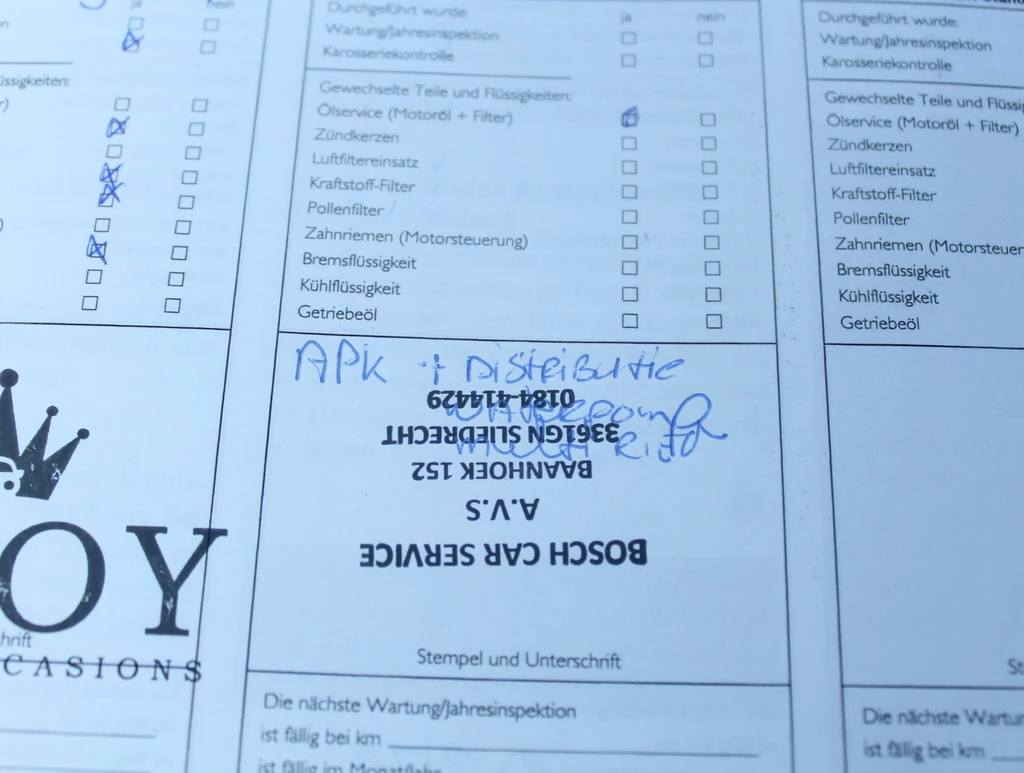 ja nein
üssigkeiten:
OY
hrift
CASIONS
Durchgeführt wurde: ja nein
Wartung/Jahresinspektion
Karosseriekontrolle
Gewechselte Teile und Flüssigkeiten:
Ölservice (Motoröl + Filter)
Zündkerzen
Luftfiltereinsatz
Kraftstoff-Filter
Pollenfilter
Zahnriemen (Motorsteuerung)
Bremsflüssigkeit
Kühlflüssigkeit
Getriebeöl
APK + Distributie
waterpomp
multi Riem
BOSCH CAR SERVICE
A.V.S
BAANHOEK 152
3361GN SLIEDRECHT
0184-414429
Stempel und Unterschrift
Die nächste Wartung/Jahresinspektion
ist fällig bei km
ist fällig im Monat/Jahr
Durchgeführt wurde:
Wartung/Jahresinspektion
Karosseriekontrolle
Gewechselte Teile und Flüssig
Ölservice (Motoröl + Filter)
Zündkerzen
Luftfiltereinsatz
Kraftstoff-Filter
Pollenfilter
Zahnriemen (Motorsteuer
Bremsflüssigkeit
Kühlflüssigkeit
Getriebeöl
St
Die nächste Wartun
ist fällig bei km